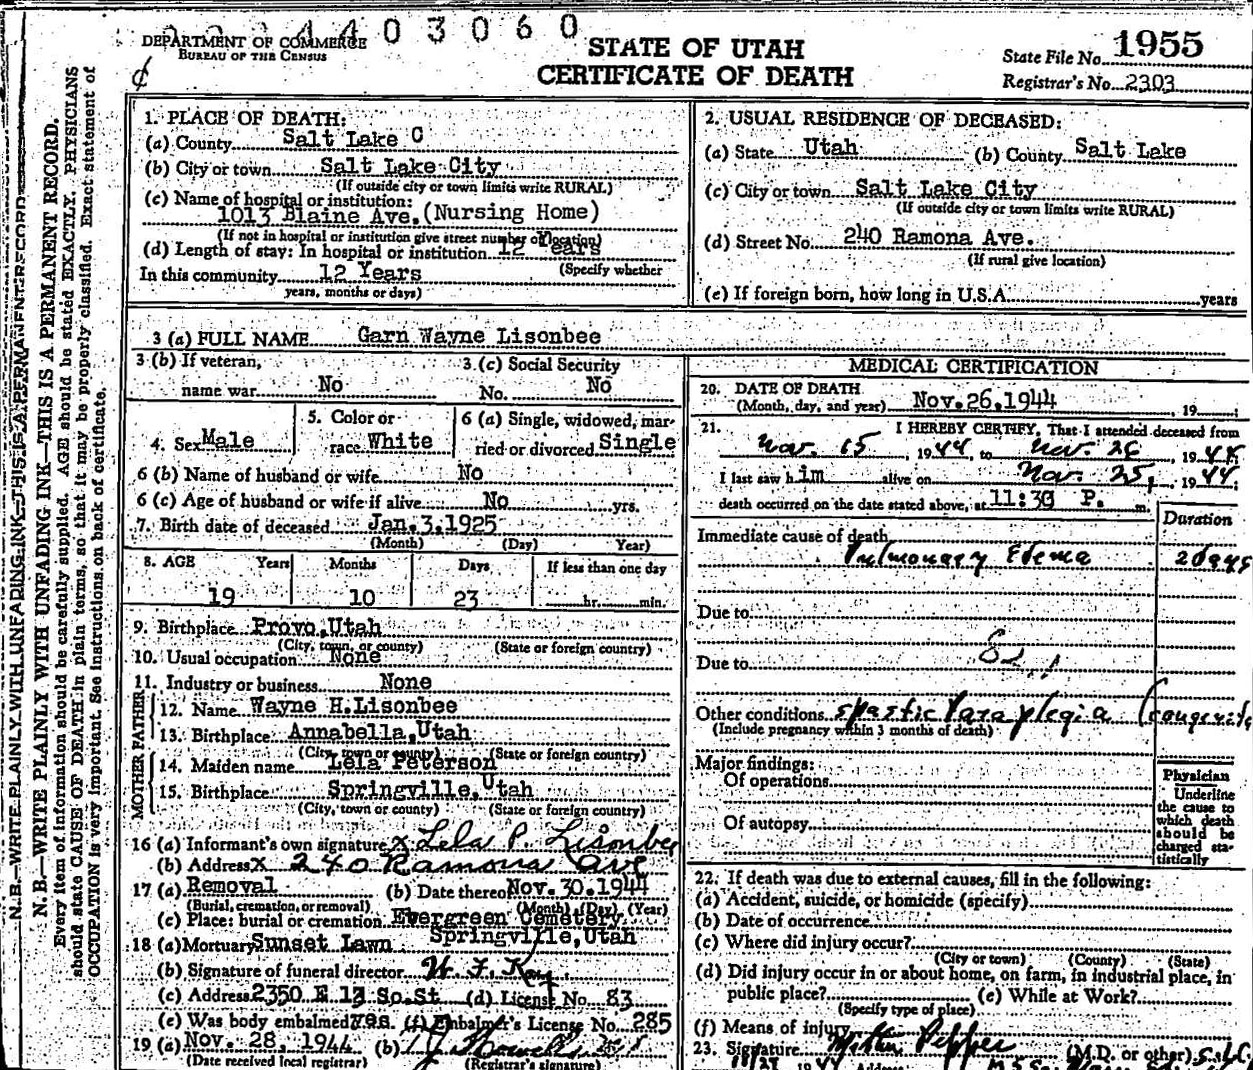 4 4 0 3 0 6 0
DEPARTMENT OF COMMERCE
BUREAU OF THE CENSUS
STATE OF UTAH
CERTIFICATE OF DEATH
State File No. 1955
Registrar's No. 2303
N.B.—WRITE PLAINLY WITH UNFADING INK—THIS IS A PERMANENT RECORD
N. B.—WRITE PLAINLY WITH UNFADING INK—THIS IS A PERMANENT RECORD.
Every item of information should be carefully supplied. AGE should be stated EXACTLY. PHYSICIANS
should state CAUSE OF DEATH in plain terms, so that it may be properly classified. Exact statement of
OCCUPATION is very important. See instructions on back of certificate.
1. PLACE OF DEATH:
(a) County Salt Lake C
(b) City or town Salt Lake City
(If outside city or town limits write RURAL)
(c) Name of hospital or institution:
1013 Blaine Ave. (Nursing Home)
(If not in hospital or institution give street number or location)
(d) Length of stay: In hospital or institution 12 Years
(Specify whether
In this community 12 Years
years, months or days)
2. USUAL RESIDENCE OF DECEASED:
(a) State Utah (b) County Salt Lake
(c) City or town Salt Lake City
(If outside city or town limits write RURAL)
(d) Street No. 240 Ramona Ave.
(If rural give location)
(e) If foreign born, how long in U.S.A. years
3 (a) FULL NAME Garn Wayne Lisonbee
3 (b) If veteran,
name war No
3.(c) Social Security
No. No
4. Sex Male
5. Color or
race White
6 (a) Single, widowed, mar-
ried or divorced Single
6 (b) Name of husband or wife No
6 (c) Age of husband or wife if alive No yrs.
7. Birth date of deceased Jan.3,1925
(Month) (Day) Year)
8. AGE Years Months Days If less than one day
19 10 23 hr. min.
9. Birthplace Provo,Utah
(City, town, or county) (State or foreign country)
10. Usual occupation None
11. Industry or business None
FATHER
12. Name Wayne H.Lisonbee
13. Birthplace Annabella,Utah
(City, town or county) (State or foreign country)
MOTHER
14. Maiden name Lela Peterson
15. Birthplace Springville,Utah
(City, town or county) (State or foreign country)
16 (a) Informant's own signature X Lela P. Lisonbee
(b) Address X 240 Ramona Ave
17 (a) Removal (b) Date thereof Nov.30.1944
(Burial, cremation, or removal) (Month) (Day) (Year)
(c) Place: burial or cremation Evergreen Cemetery
Springville,Utah
18 (a) Mortuary Sunset Lawn
(b) Signature of funeral director
(c) Address 2350 E 13 So.St (d) License No. 83
(e) Was body embalmed yes. (f) Embalmer's License No. 285
19 (a) Nov. 28, 1944 (b)
(Date received local registrar) (Registrar's signature)
MEDICAL CERTIFICATION
20. DATE OF DEATH
(Month, day, and year) Nov.26,1944 , 19 ;
21. I HEREBY CERTIFY, That I attended deceased from
Nov. 15 , 1944, to Nov. 26 , 1944;
I last saw h im alive on Nov. 25, , 1944;
death occurred on the date stated above, at 11:30 P. m.
Duration
Immediate cause of death
Pulmonary Edema 2 days
Due to
Due to
Other conditions spastic Paraplegia (congenita
(Include pregnancy within 3 months of death)
Major findings:
Of operations
Of autopsy
Physician
Underline
the cause to
which death
should be
charged sta-
tistically
22. If death was due to external causes, fill in the following:
(a) Accident, suicide, or homicide (specify)
(b) Date of occurrence
(c) Where did injury occur?
(City or town) (County) (State)
(d) Did injury occur in or about home, on farm, in industrial place, in
public place? (e) While at Work?
(Specify type of place)
(f) Means of injury
23. Signature Pepper (M.D. or other) S.L.C.
11/27 1944 Address